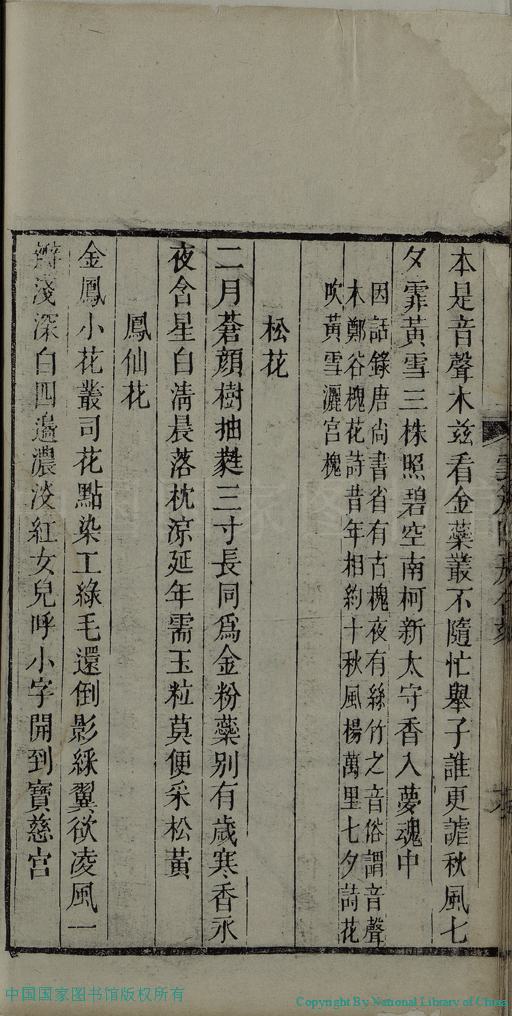 本是音聲木茲看金蘂叢不隨忙舉子誰更謔秋風七
夕霏黃雪三株照碧空南柯新太守香入夢魂中
因話錄唐尚書省有古槐夜有絲竹之音俗謂音聲
木鄭谷槐花詩昔年相約十秋風楊萬里七夕詩花
吹黃雪灑宮槐
松花
二月蒼顏樹抽蕤三寸長同爲金粉蘂别有歲寒香永
夜含星白淸晨落枕涼延年需玉粒莫便采松黃
鳳仙花
金鳳小花叢司花點染工綠毛還倒影綵翼欲凌風一
瓣淺深白四邉濃淡紅女兒呼小字開到寶慈宮
中国国家图书馆版权所有
Copyright By National Library of China